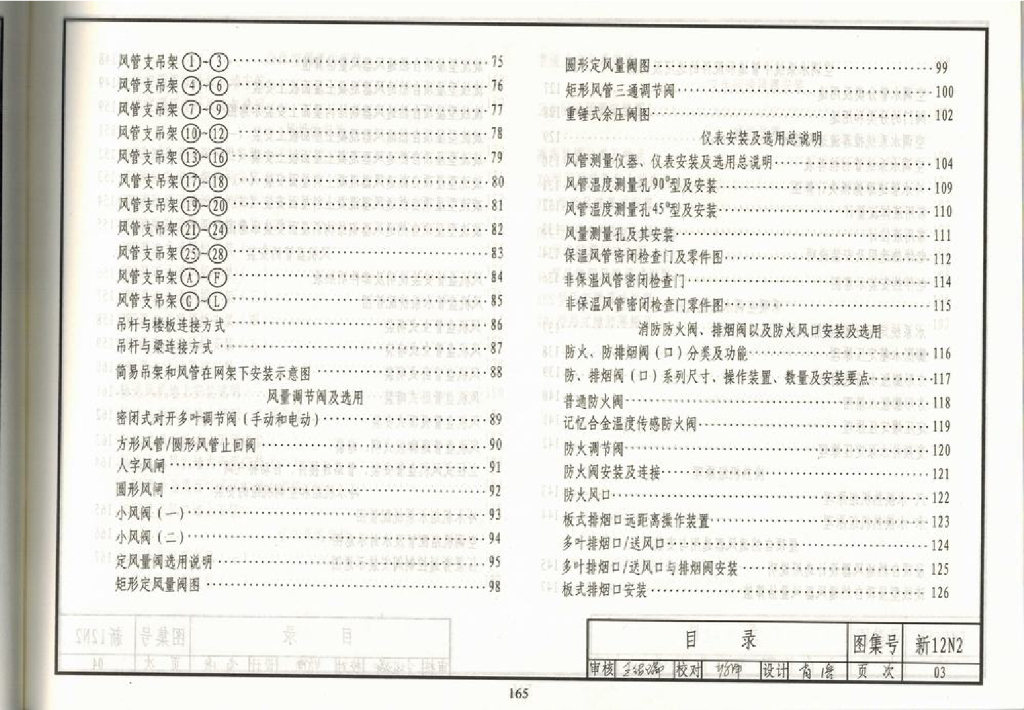 风管支吊架①-③ 75
风管支吊架④-⑥ 76
风管支吊架⑦-⑨ 77
风管支吊架⑩-⑫ 78
风管支吊架⑬-⑯ 79
风管支吊架⑰-⑱ 80
风管支吊架⑲-⑳ 81
风管支吊架㉑-㉔ 82
风管支吊架㉕-㉘ 83
风管支吊架Ⓐ-Ⓕ 84
风管支吊架Ⓖ-Ⓛ 85
吊杆与楼板连接方式 86
吊杆与梁连接方式 87
简易吊架和风管在网架下安装示意图 88
风量调节阀及选用
密闭式对开多叶调节阀(手动和电动) 89
方形风管/圆形风管止回阀 90
人字风闸 91
圆形风闸 92
小风阀(一) 93
小风阀(二) 94
定风量阀选用说明 95
矩形定风量阀图 98
圆形定风量阀图 99
矩形风管三通调节阀 100
重锤式余压阀图 102
仪表安装及选用总说明
风管测量仪器、仪表安装及选用总说明 104
风管温度测量孔90°型及安装 109
风管温度测量孔45°型及安装 110
风量测量孔及其安装 111
保温风管密闭检查门及零件图 112
非保温风管密闭检查门 114
非保温风管密闭检查门零件图 115
消防防火阀、排烟阀以及防火风口安装及选用
防火、防排烟阀(口)分类及功能 116
防、排烟阀(口)系列尺寸、操作装置、数量及安装要点 117
普通防火阀 118
记忆合金温度传感防火阀 119
防火调节阀 120
防火阀安装及连接 121
防火风口 122
板式排烟口远距离操作装置 123
多叶排烟口/送风口 124
多叶排烟口/送风口与排烟阀安装 125
板式排烟口安装 126
目 录 图集号 新12N2
审核 校对 设计 页 次 03
165